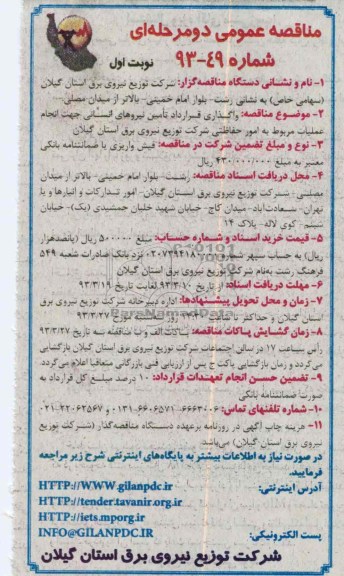 مناقصه عمومی دومرحله‌ای
شماره ۴۹-۹۳
نوبت اول
۱- نام و نشانی دستگاه مناقصه‌گزار: شرکت توزیع نیروی برق استان گیلان
(سهامی خاص) به نشانی رشت- بلوار امام خمینی- بالاتر از میدان مصلی
۲- موضوع مناقصه: واگذاری قرارداد تأمین نیروهای انسانی جهت انجام
عملیات مربوط به امور حفاظتی شرکت توزیع نیروی برق استان گیلان
۳- نوع و مبلغ تضمین شرکت در مناقصه: فیش واریزی یا ضمانتنامه بانکی
معتبر به مبلغ ۴۳۰/۰۰۰/۰۰۰ ریال
۴- محل دریافت اسناد مناقصه: رشت- بلوار امام خمینی- بالاتر از میدان
مصلی- شرکت توزیع نیروی برق استان گیلان- امور تدارکات و انبارها و یا
تهران- سعادت‌آباد- میدان کاج- خیابان شهید خلبان جمشیدی (یک)- خیابان
سیتم- کوی لاله- پلاک ۱۴
۵- قیمت خرید اسناد و شماره حساب: مبلغ ۵۰۰۰۰۰ ریال (پانصدهزار
ریال) به حساب سپهر نزد بانک صادرات شعبه ۵۴۹
فرهنگ رشت به‌نام شرکت توزیع نیروی برق استان گیلان
۶- مهلت دریافت اسناد: از تاریخ ۹۳/۳/۱۰ لغایت تاریخ ۹۳/۳/۱۹
۷- زمان و محل تحویل پیشنهادها: اداره دبیرخانه شرکت توزیع نیروی برق
استان گیلان و حداکثر تا روز ۹۳/۳/۲۷
۸- زمان گشایش پاکات مناقصه: پاکات الف و ب مناقصه به تاریخ ۹۳/۳/۲۷
رأس ساعت ۱۷ در سالن اجتماعات شرکت توزیع نیروی برق استان گیلان بازگشایی
می‌گردد و زمان بازگشایی پاکت ج پس از ارزیابی فنی بازرگانی متعاقبا اعلام می‌گردد.
۹- تضمین حسن انجام تعهدات قرارداد: ۱۰ درصد مبلغ کل قرارداد به
صورت ضمانتنامه بانکی
۱۰- شماره تلفنهای تماس: ۶۶۶۳۰۰۶- ۶۶۰۶۵۷۱-۰۱۳۱ و ۲۲۰۶۲۵۶۷-۰۲۱
۱۱- هزینه چاپ آگهی در روزنامه برعهده دستگاه مناقصه‌گذار (شرکت توزیع
نیروی برق استان گیلان) می‌باشد.
در صورت نیاز به اطلاعات بیشتر به پایگاه‌های اینترنتی شرح زیر مراجعه
فرمایید.
آدرس اینترنتی: HTTP://WWW.gilanpdc.ir
HTTP://tender.tavanir.org.ir
HTTP://iets.mporg.ir
پست الکترونیکی: INFO@GILANPDC.IR
شرکت توزیع نیروی برق استان گیلان